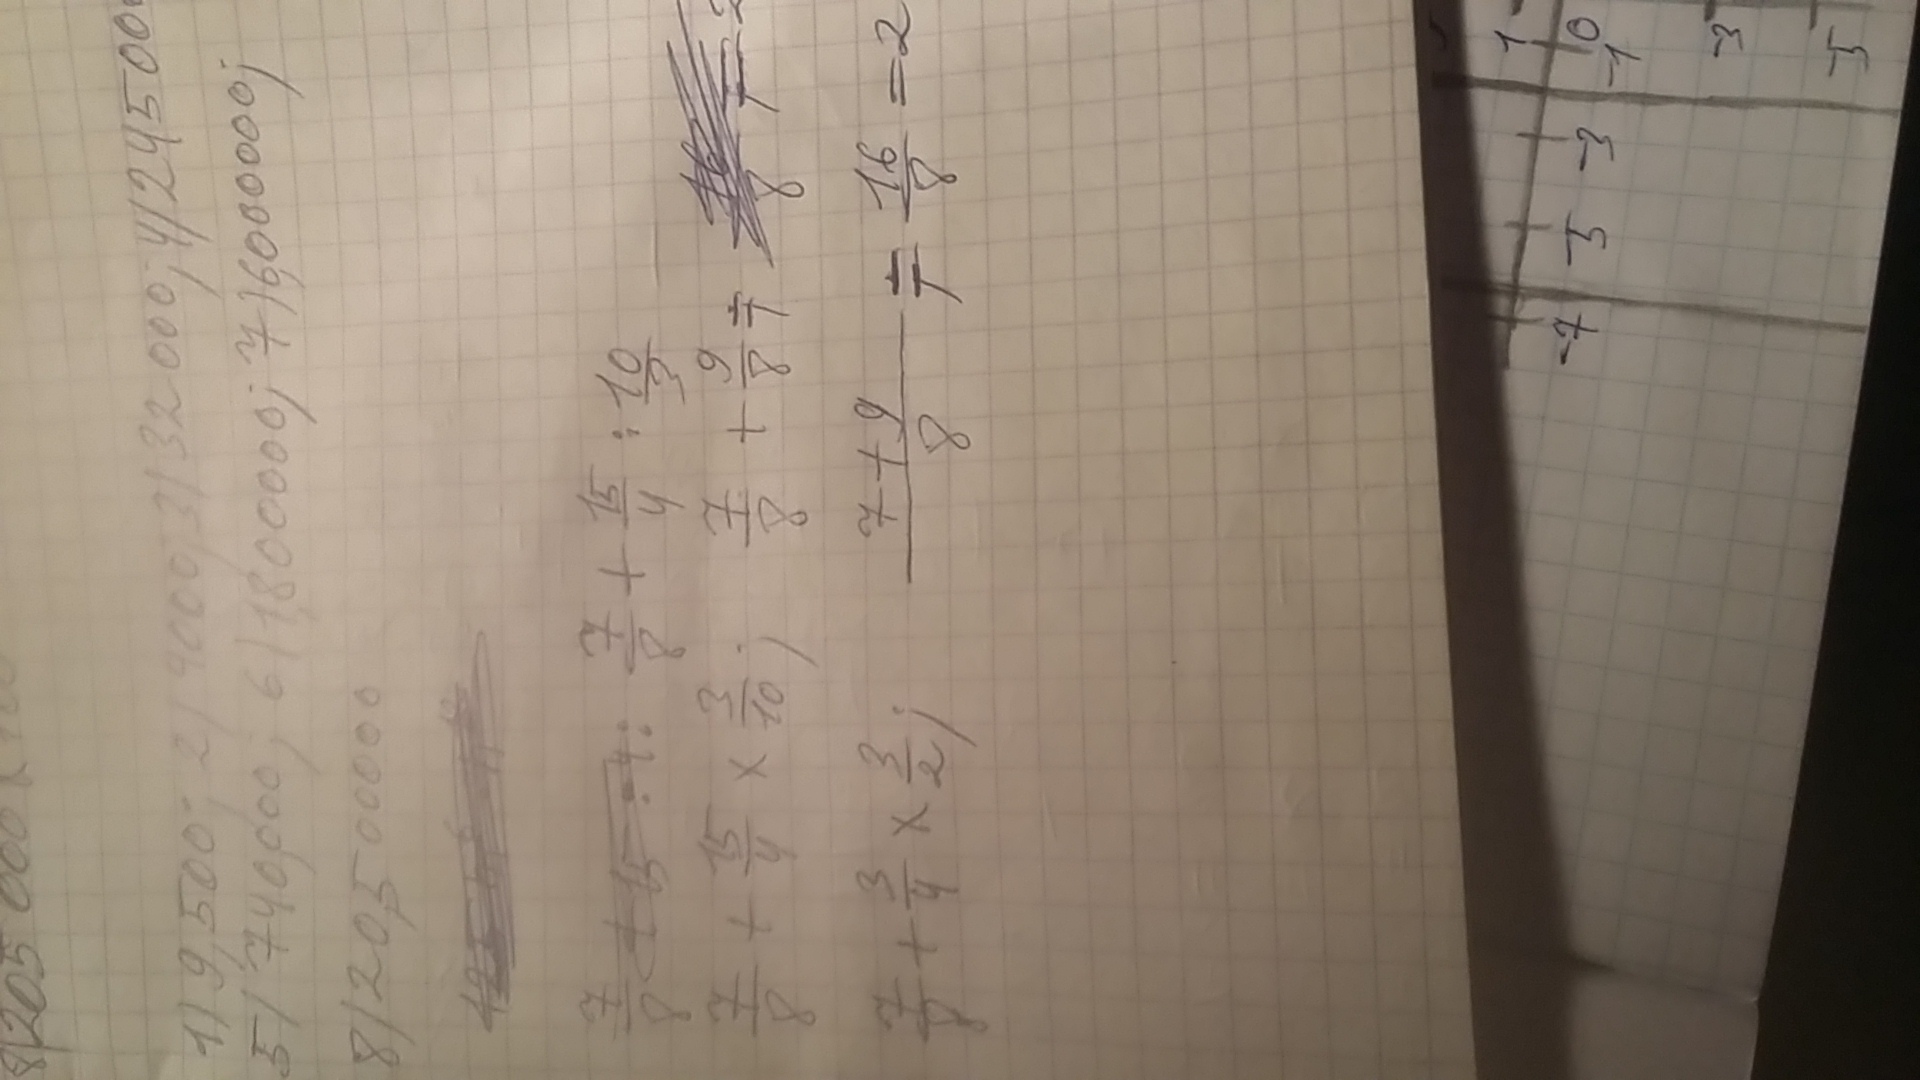 8) 205 000
1) 9,500; 2) 9000; 3) 132000; 4) 24500
5) 740,000; 6) 1,800000; 7) 6,000000;
8) 20,50000
7/8 + 15/4 : 10/3
7/8 + 15/4 × 3/10; 7/8 + 9/8 =
7/8 + 3/4 × 3/2; (7+9)/8 = 16/8 = 2
1 0
-7 -5 -3 -1
-3
-5